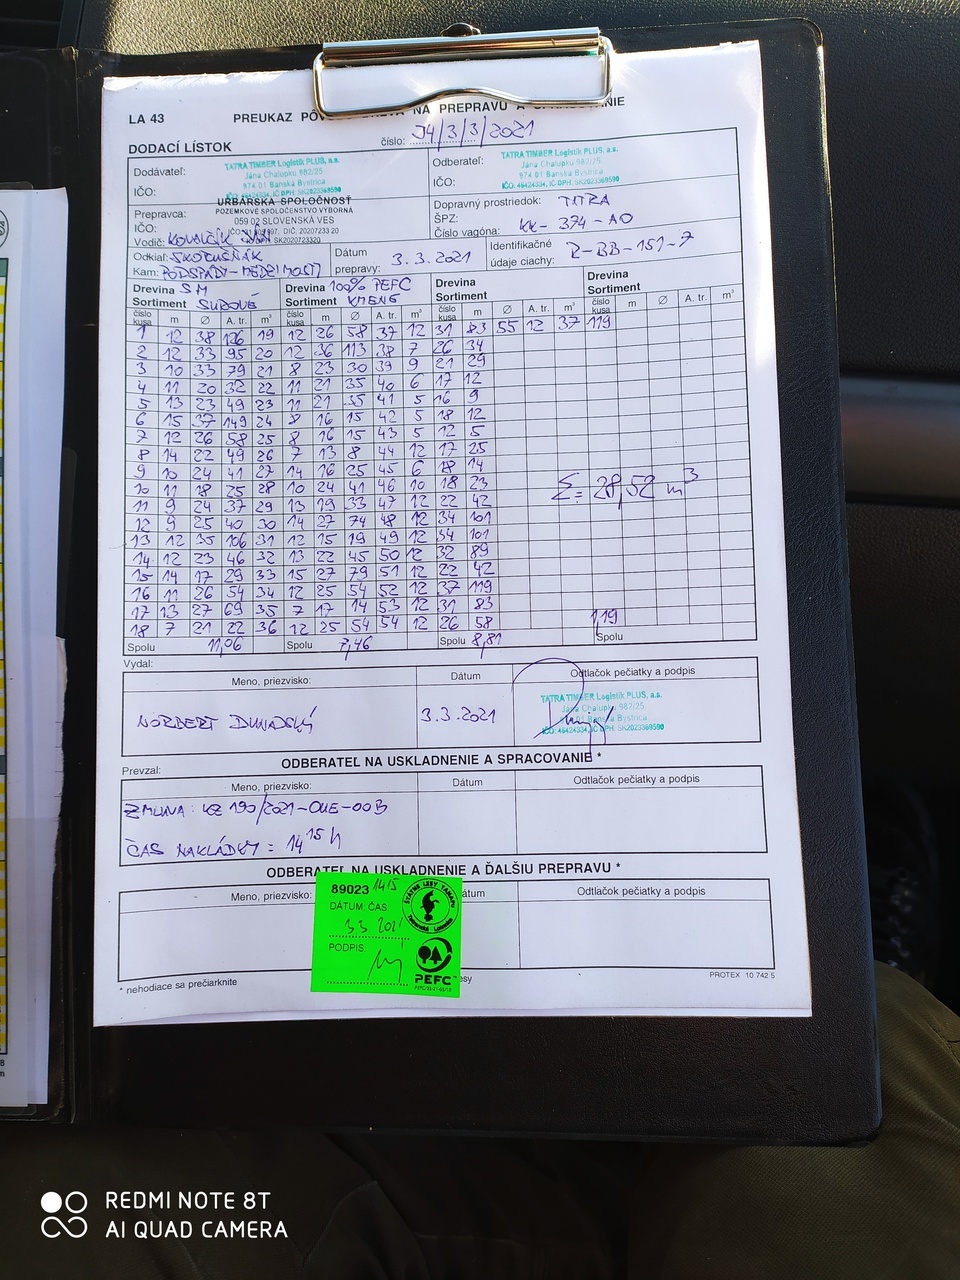 LA 43
PREUKAZ NA PREPRAVU A
DODACÍ LÍSTOK
číslo: J4/3/3/2021
Dodávateľ: TATRA TIMBER Logistik PLUS, a.s.
Jána Chalupku 982/25
974 01 Banská Bystrica
IČO: IČO: 48424334, IČ DPH: SK2023369590
Odberateľ: TATRA TIMBER Logistik PLUS, a.s.
Jána Chalupku 982/25
974 01 Banská Bystrica
IČO: IČO: 48424334, IČ DPH: SK2023369590
URBÁRSKA SPOLOČNOSŤ
POZEMKOVÉ SPOLOČENSTVO VÝBORNÁ
059 02 SLOVENSKÁ VES
Prepravca:
IČO:
Vodič: KOVALČÍK JÁN
Dopravný prostriedok: TATRA
ŠPZ: KK-374-AO
Číslo vagóna:
Odkiaľ: SKORUŠŇÁK
Kam: PODSPÁDY-MEDZI MOSTY
Dátum prepravy: 3.3.2021
Identifikačné údaje ciachy: R-BB-151-7
Drevina SM Drevina 100% PEFC Drevina Drevina
Sortiment SUROVÉ Sortiment KMENE Sortiment Sortiment
číslo kusa m Ø A. tr. m³ číslo kusa m Ø A. tr. m³ číslo kusa m Ø A. tr. m³ číslo kusa m Ø A. tr. m³
1 12 38 126 19 12 26 58 37 12 31 83 55 12 37 119
2 12 33 95 20 12 36 113 38 7 26 34
3 10 33 79 21 8 23 30 39 9 21 29
4 11 20 32 22 11 21 35 40 6 17 12
5 13 23 49 23 11 21 35 41 5 16 9
6 15 37 149 24 8 16 15 42 5 18 12
7 12 26 58 25 8 16 15 43 5 12 5
8 14 22 49 26 7 13 8 44 12 17 25
9 10 24 41 27 14 16 25 45 6 18 14
10 11 18 25 28 10 24 41 46 10 18 23
11 9 24 37 29 13 19 33 47 12 22 42
12 9 25 40 30 14 27 74 48 12 34 101
13 12 35 106 31 12 15 19 49 12 34 101
14 12 23 46 32 13 22 45 50 12 32 89
15 14 17 29 33 15 27 79 51 12 22 42
16 11 26 54 34 12 25 54 52 12 37 119
17 13 27 69 35 7 17 14 53 12 31 83
18 7 21 22 36 12 25 54 54 12 26 58
Σ = 28,52 m³
Spolu 11,06 Spolu 7,46 Spolu 8,81 1,19 Spolu
Vydal:
Meno, priezvisko: Dátum Odtlačok pečiatky a podpis
NORBERT DUNADSKÝ 3.3.2021
TATRA TIMBER Logistik PLUS, a.s.
Jána Chalupku 982/25
974 01 Banská Bystrica
IČO: 48424334, IČ DPH: SK2023369590
ODBERATEĽ NA USKLADNENIE A SPRACOVANIE *
Prevzal:
Meno, priezvisko: Dátum Odtlačok pečiatky a podpis
ZMLUVA: KZ 190/2021-OUE-00B
ČAS NAKLÁDKY = 14¹⁵ h
ODBERATEĽ NA USKLADNENIE A ĎALŠIU PREPRAVU *
Meno, priezvisko: Dátum Odtlačok pečiatky a podpis
89023 1415
DÁTUM, ČAS:
3 3 2021
PODPIS
ŠTÁTNE LESY TANAPu
Tatranská Lomnica
PEFC
* nehodiace sa prečiarknite
PROTEX 10 742 5
REDMI NOTE 8T
AI QUAD CAMERA